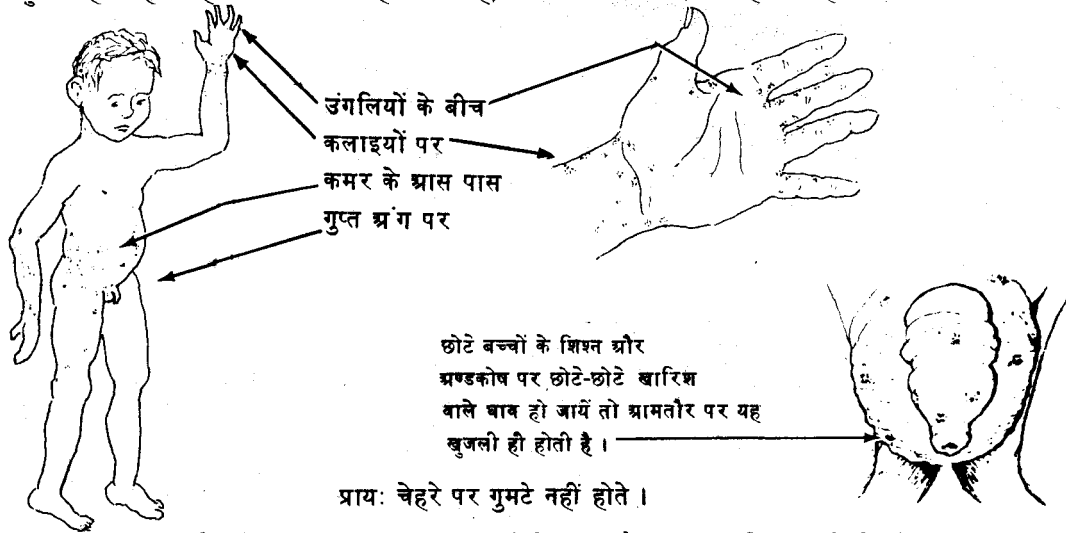 उंगलियों के बीच
कलाइयों पर
कमर के आस पास
गुप्त अंग पर
छोटे बच्चों के शिश्न और
अण्डकोष पर छोटे-छोटे खारिश
वाले घाव हो जायें तो आमतौर पर यह
खुजली ही होती है ।
प्रायः चेहरे पर गुमटे नहीं होते ।